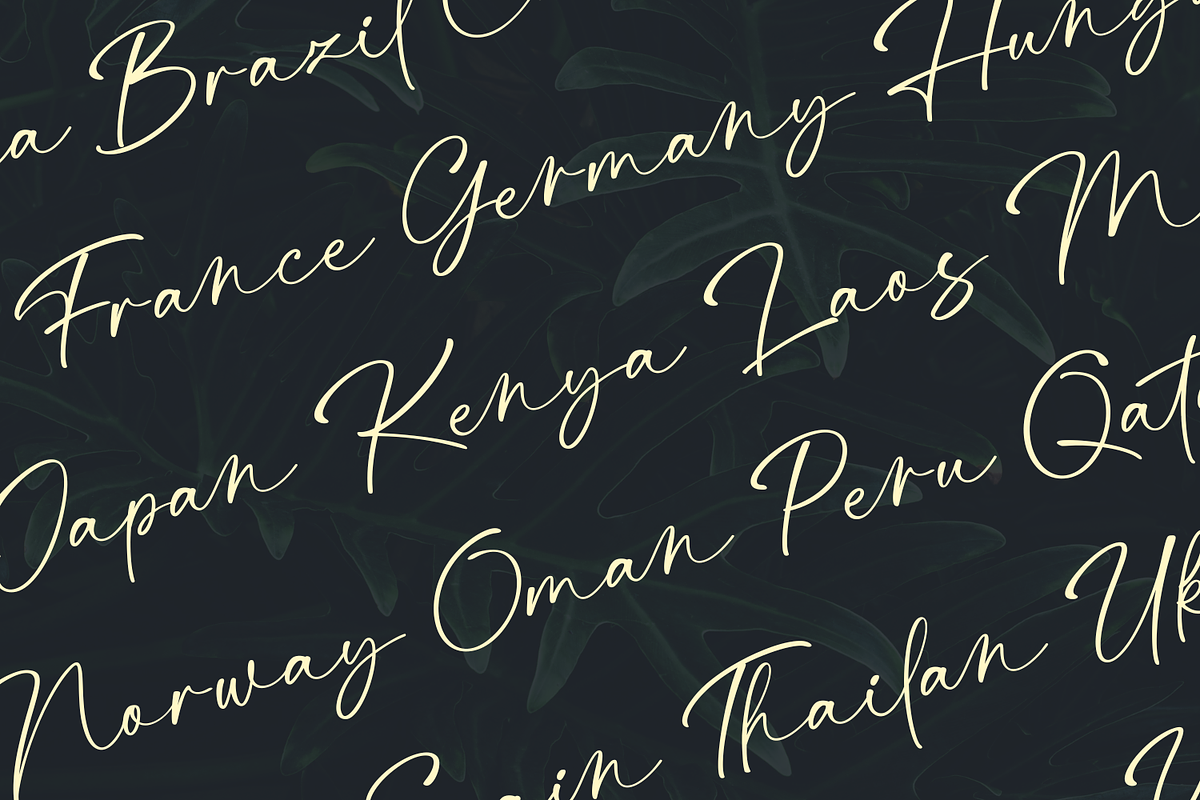 a Brazil C
France Germany Hung
Japan Kenya Laos M
Norway Oman Peru Qat
Thailan Uk